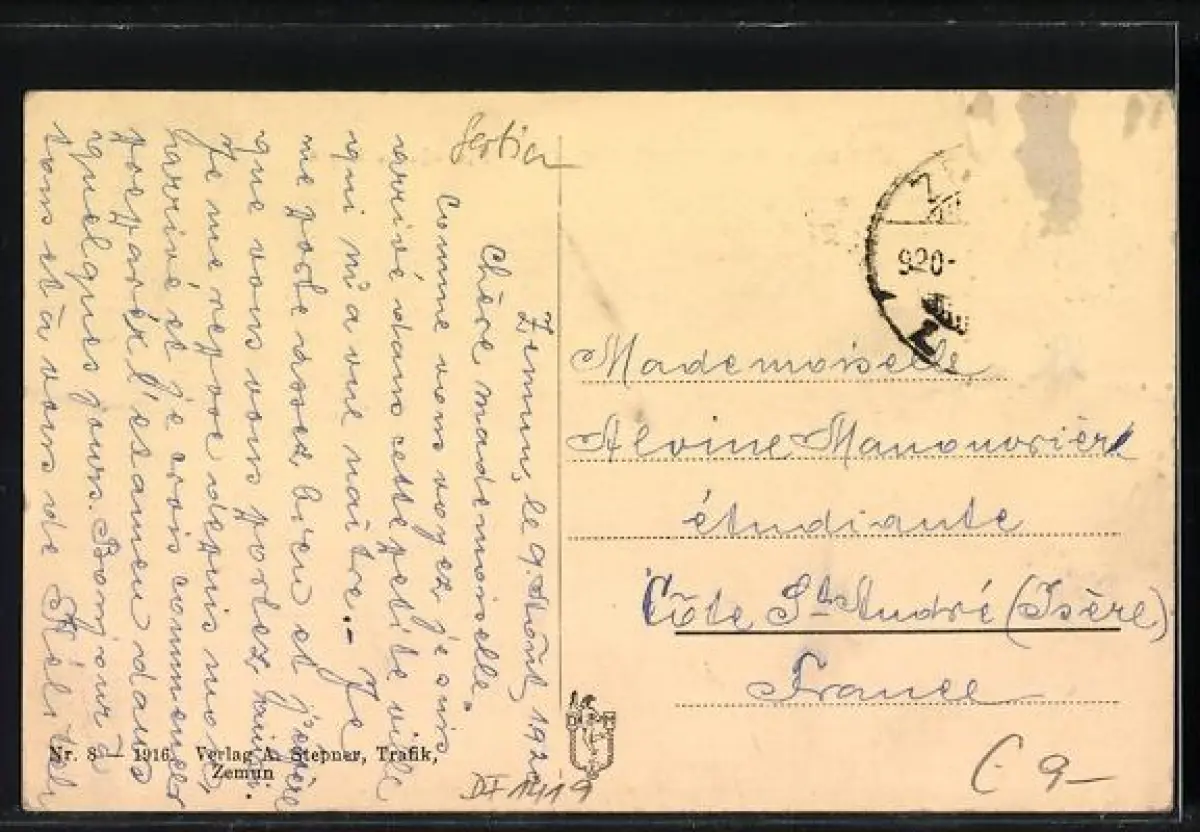 Serbien
Zemun, le 9. Août, 192
Chère mademoiselle.
Comme vous voyez je suis
arrivé dans cette petite ville
qui m'a vue naître.- Je
me porte assez bien et j'espère
que vous vous portez
Je me repose depuis mon
harrivé et je crois commencer
préparér l'examen dans
quelques jours. Bonjour à
tous et à vous de
Nr. 8 — 1916 Verlag A. Stepner, Trafik,
Zemun
920-
Mademoiselle
Alvine Manouvrière
étudiante
Côte St. André (Isère)
France
€ 9-